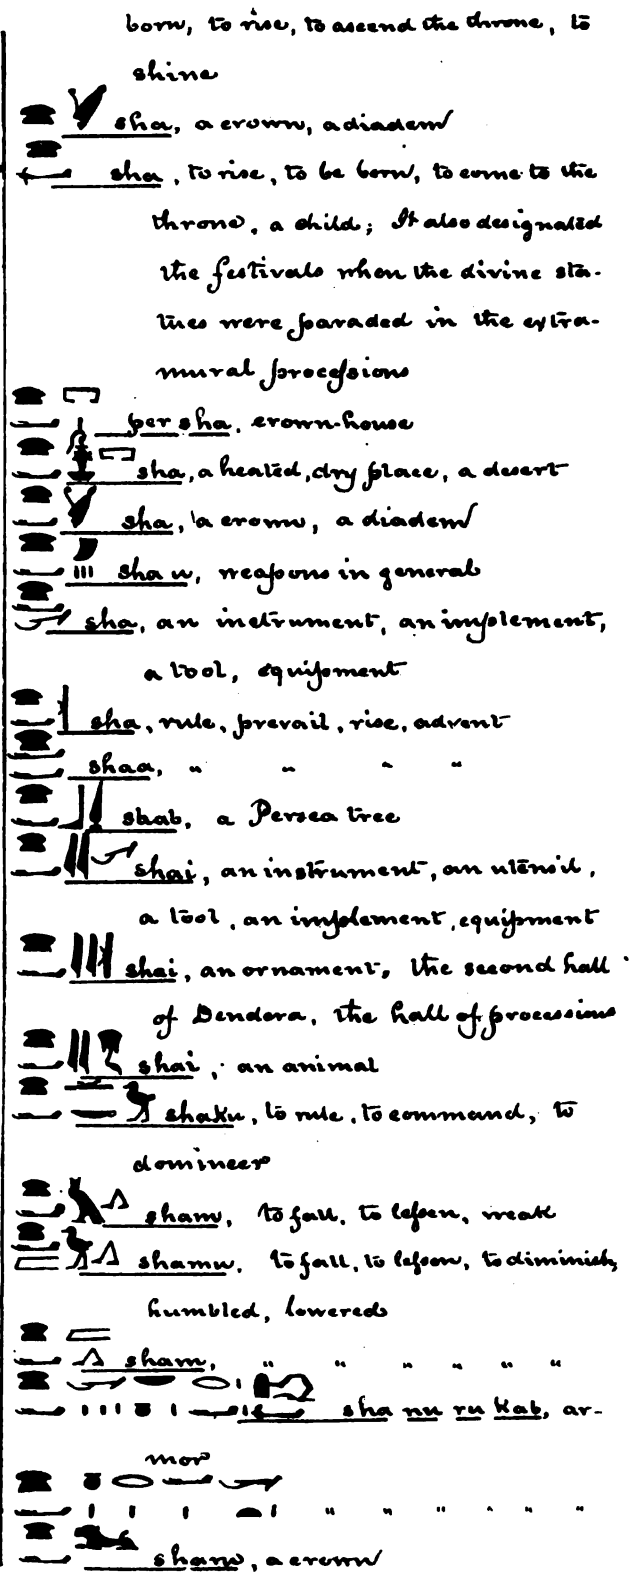 born, to rise, to ascend the throne, to
shine
sha, a crown, a diadem
sha, to rise, to be born, to come to the
throne, a child; It also designated
the festivals when the divine sta-
tues were paraded in the extra-
mural processions
per sha, crown-house
sha, a heated, dry place, a desert
sha, a crown, a diadem
sha u, weapons in general
sha, an instrument, an implement,
a tool, equipment
sha, rule, prevail, rise, advent
shaa, " " " "
shab, a Persea tree
shai, an instrument, an utensil,
a tool, an implement, equipment
shai, an ornament, the second hall
of Dendera, the hall of processions
shai, an animal
shaku, to rule, to command, to
domineer
sham, to fall, to lessen, weak
shamu, to fall, to lesson, to diminish,
humbled, lowered
sham, " " " " " "
sha nu ru kab, ar-
mor
" " " " " "
sham, a crown